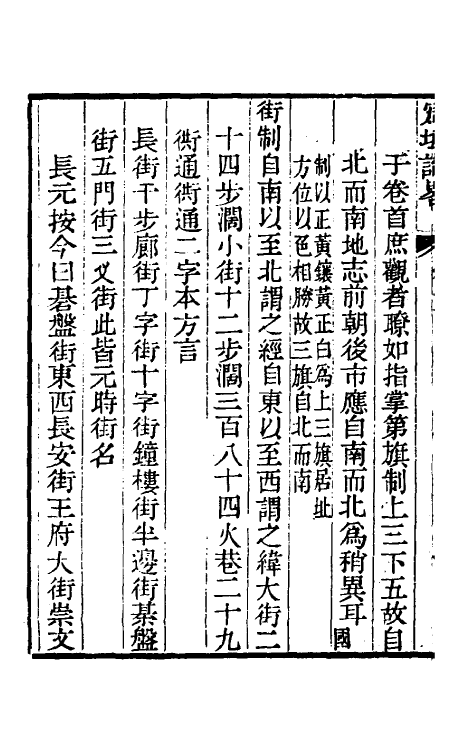 宸垣識畧
于卷首庶觀者瞭如指掌第旗制上三下五故自
北而南地志前朝後市應自南而北爲稍異耳國
制以正黃鑲黃正白爲上三旗居址
方位以色相勝故三旗自北而南
街制自南以至北謂之經自東以至西謂之緯大街二
十四步濶小街十二步濶三百八十四火巷二十九
衖通衖通二字本方言
長街千步廊街丁字街十字街鐘樓街半邊街棊盤
街五門街三叉街此皆元時街名
長元按今曰碁盤街東西長安街王府大街崇文